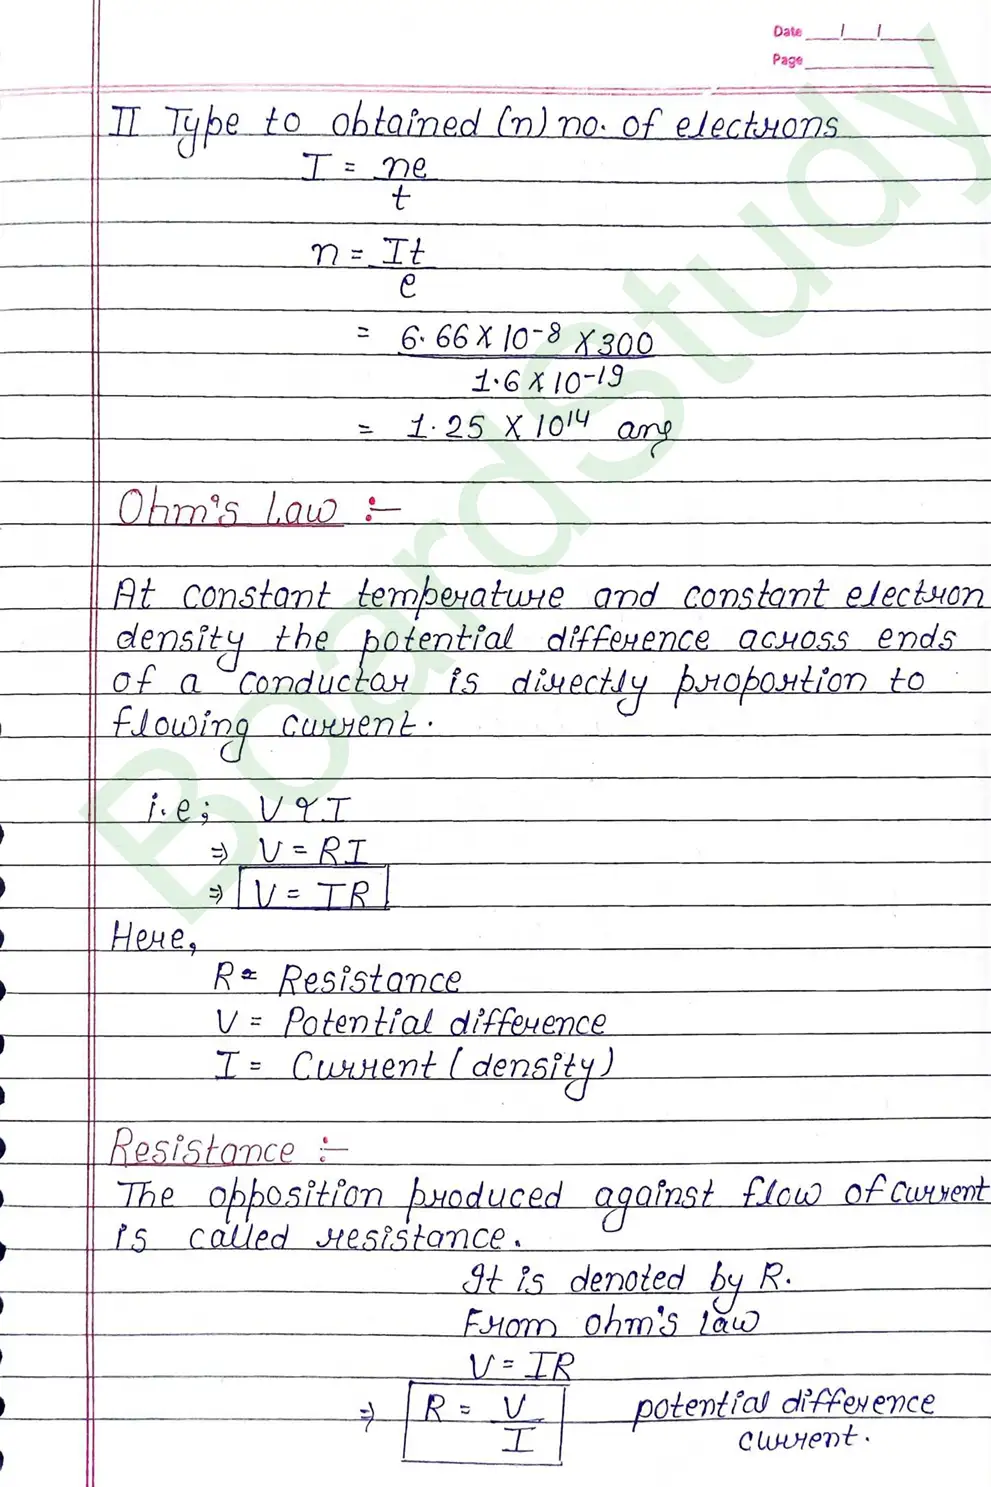 Date / /
Page
II Type to obtained (n) no. of electrons
I = ne
t
n = It
e
= 6.66 X 10-8 X 300
1.6 X 10-19
= 1.25 X 10¹⁴ ans
Ohm's Law :-
At constant temperature and constant electron
density the potential difference across ends
of a conductar is directly proportion to
flowing current.
i.e; V ∝ I
⇒ V = RI
⇒ V = IR
Here,
R = Resistance
V = Potential difference
I = Current (density)
Resistance :-
The opposition produced against flow of current
is called resistance.
It is denoted by R.
From ohm's law
V = IR
⇒ R = V potential difference
I current.
BoardStudy